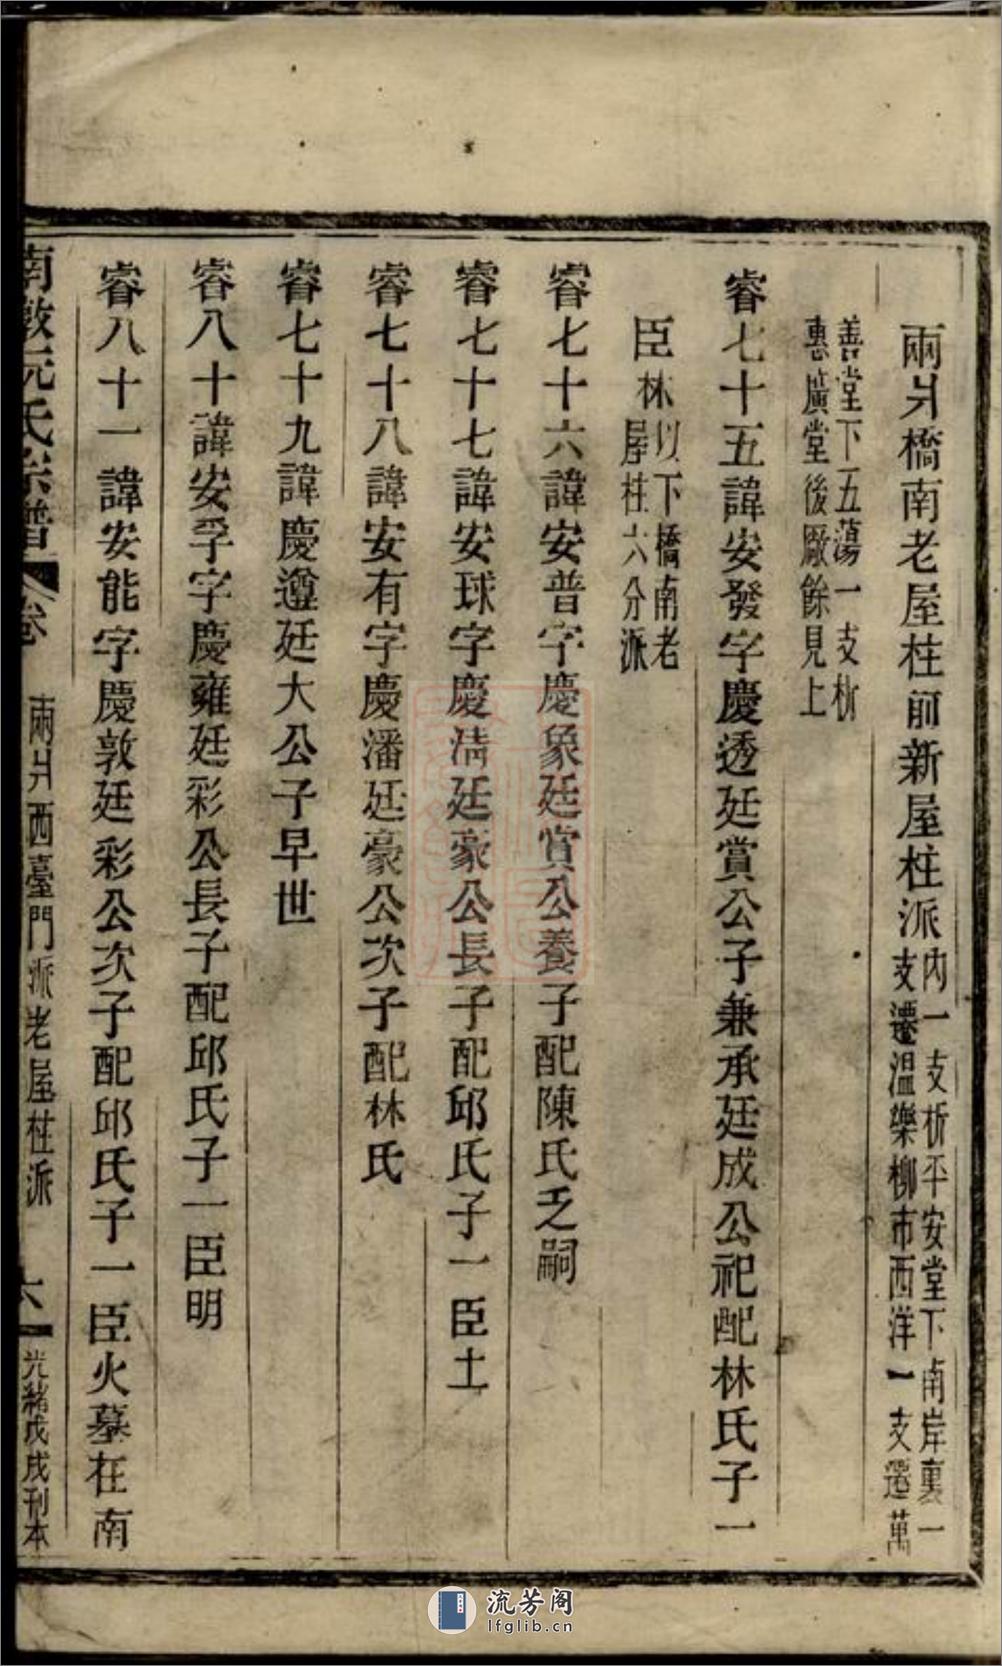 兩爿橋南老屋柱前新屋柱派內一支析平安堂下南岸裏一
支遷溫樂柳市西洋一支遷萬
善堂下五蕩一支析
惠廣堂後厰餘見上
睿七十五諱安發字慶透廷賞公子兼承廷成公祀配林氏子一
臣林以下橋南老
屋柱六分派
睿七十六諱安普字慶象廷賞公養子配陳氏乏嗣
睿七十七諱安球字慶淸廷豪公長子配邱氏子一臣土
睿七十八諱安有字慶潘廷豪公次子配林氏
睿七十九諱慶遵廷大公子早世
睿八十諱安孚字慶雍廷彩公長子配邱氏子一臣明
睿八十一諱安能字慶敦廷彩公次子配邱氏子一臣火墓在南
南敦阮氏宗譜 卷 兩爿西臺門派老屋柱派 六 光緒戊戌刊本
流芳阁
lfglib.cn